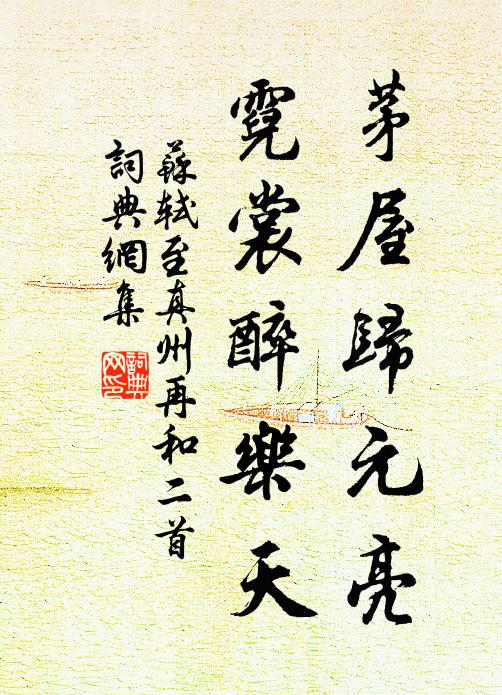 茅屋歸元亮
霓裳醉樂天
蘇軾至真州再和二首
詞典網集
詞典
网印